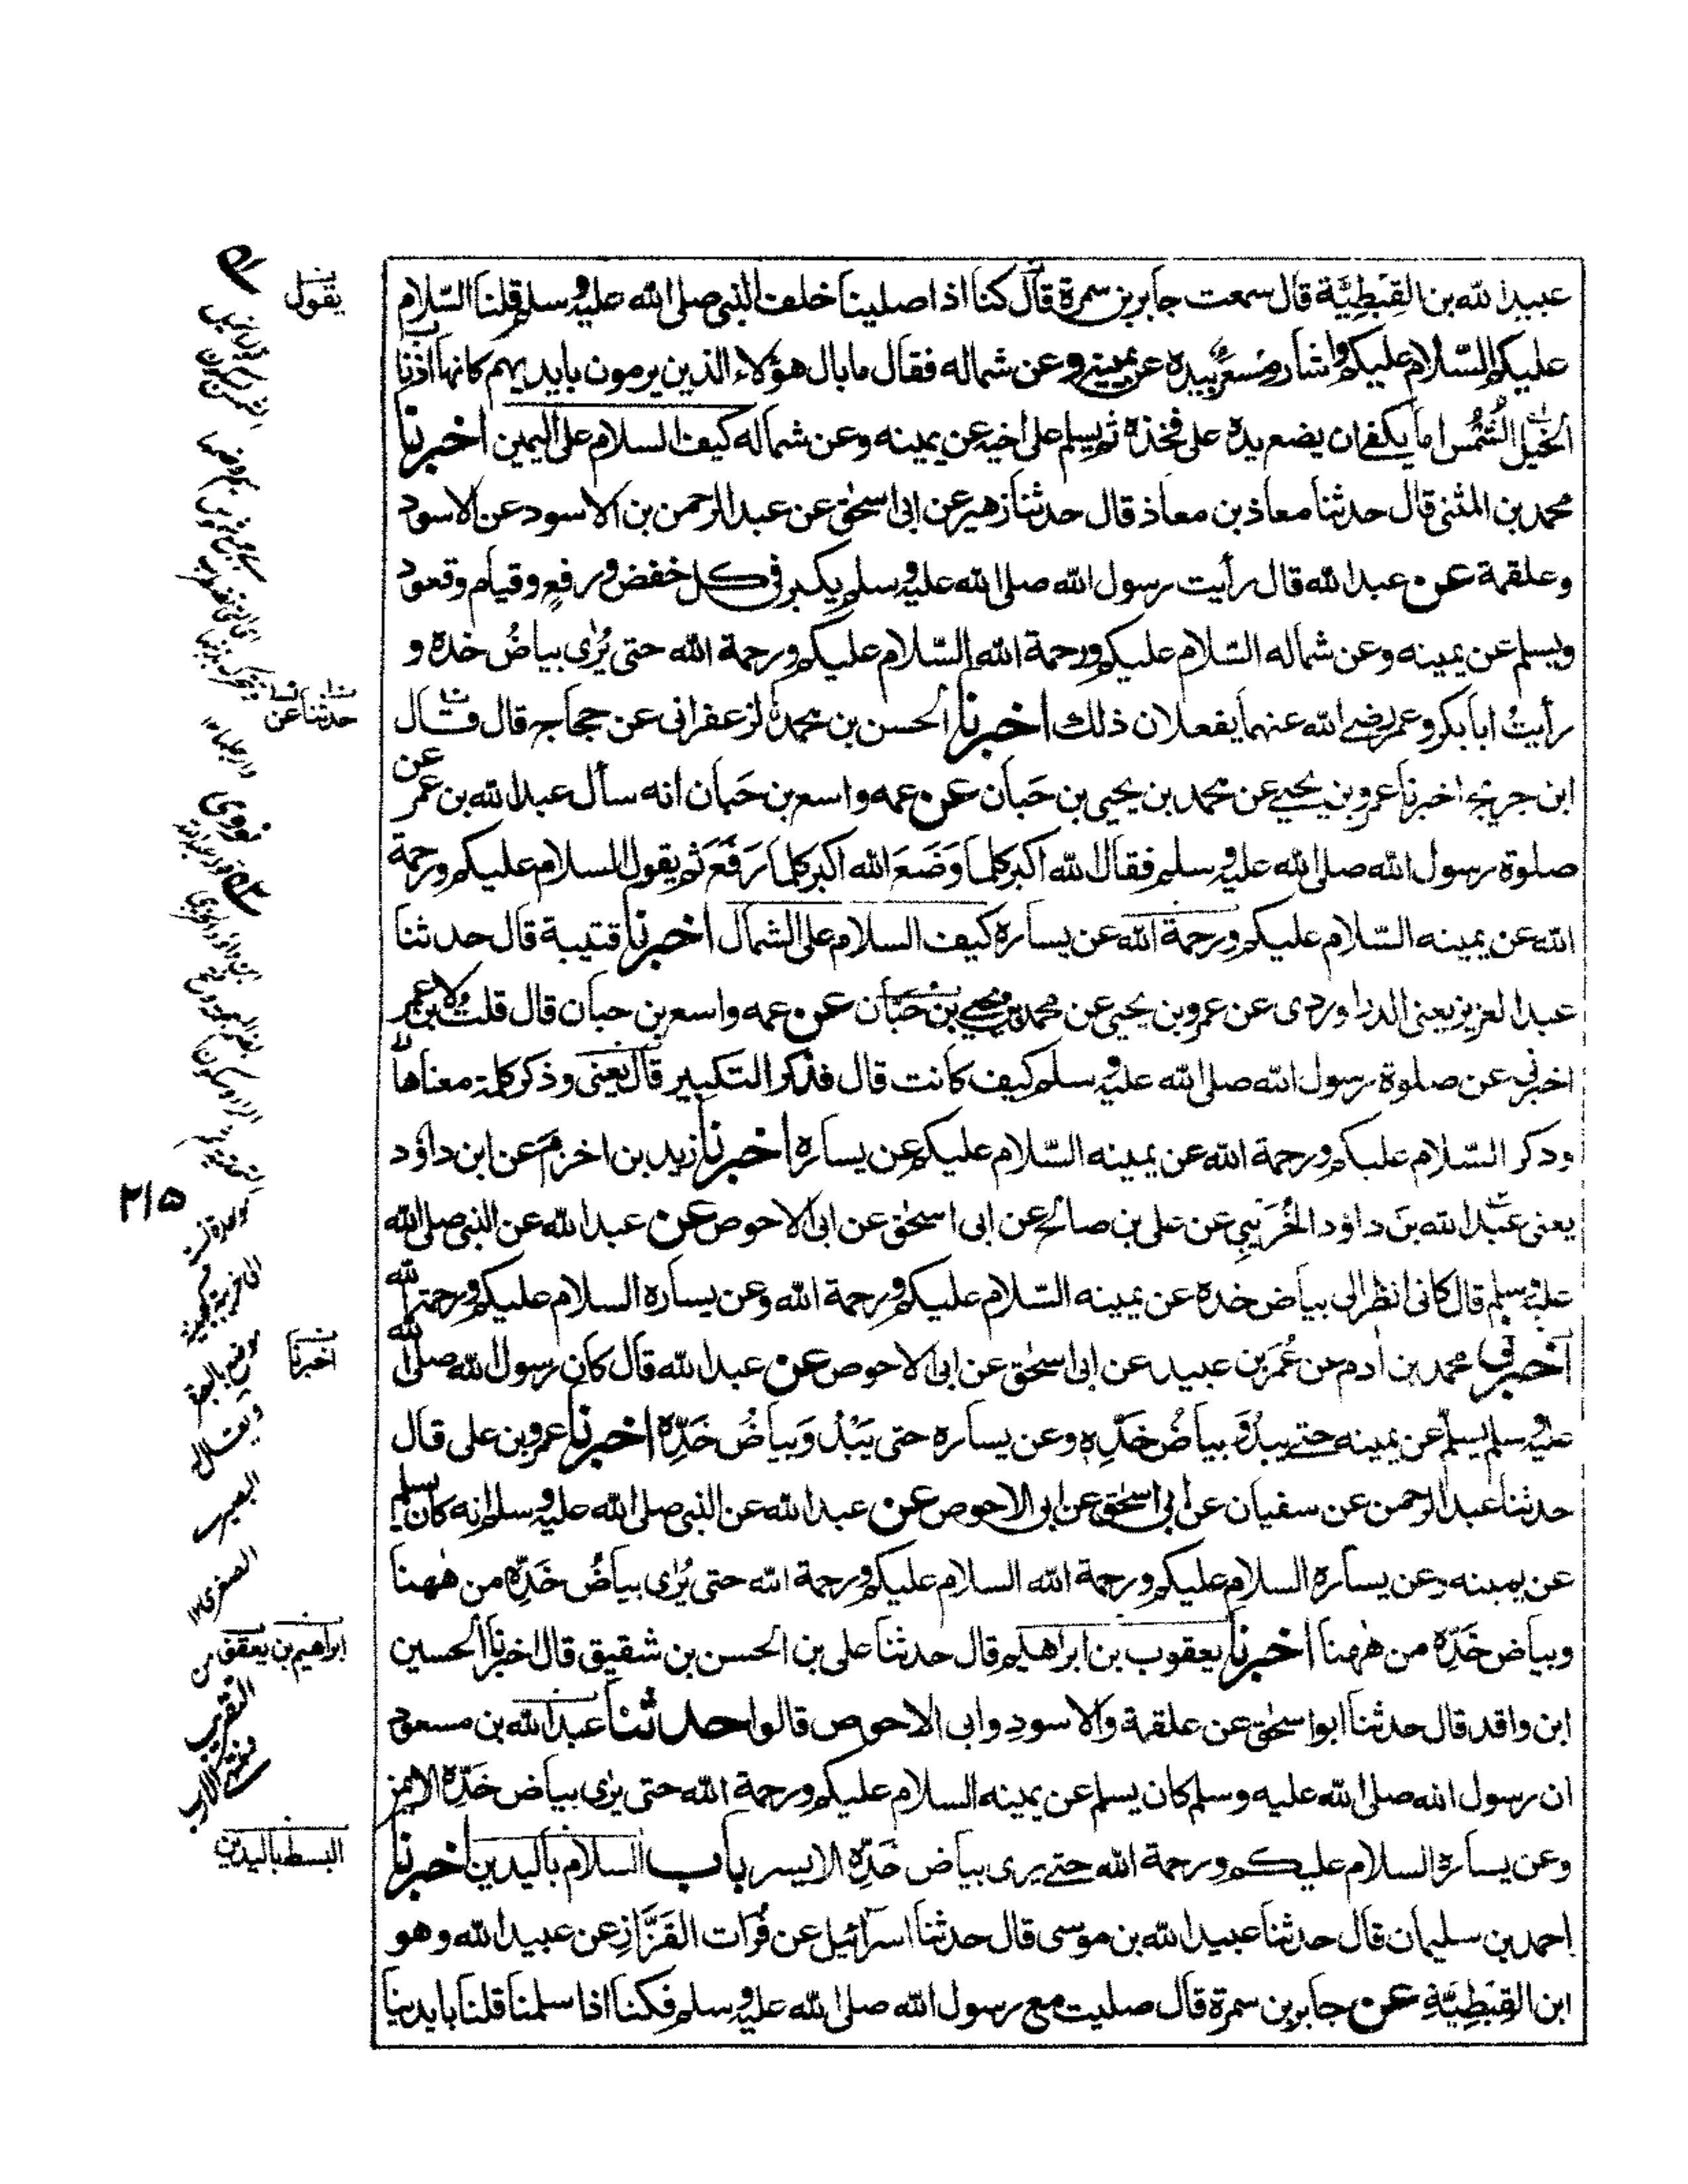 عبيد الله بن القِبْطِيَّة قال سمعت جابر بن سمرة قال كنا اذا صلينا خلف النبى صلى الله عليه وسلم قلنا السّلام
عليكم السّلام عليكم واشار مِسْعَر بيده عن يمينه وعن شماله فقال ما بال هؤلاء الذين يرمون بايديهم كانها اذناب
الخَيل الشُّمُس اما يكفى ان يضع يده على فخذه ثم يسلم على اخيه عن يمينه وعن شماله كيف السلام على اليمين اخبرنا
محمد بن المثنى قال حدثنا معاذ بن معاذ قال حدثنا زهير عن ابى اسحٰق عن عبد الرحمن بن الاسود عن الاسود
وعلقمة عن عبد الله قال رأيت رسول الله صلى الله عليه وسلم يكبر فى كل خفض ورفعٍ وقيام وقعود
ويسلم عن يمينه وعن شماله السّلام عليكم ورحمة الله السّلام عليكم ورحمة الله حتى يُرٰى بياضُ خده و
رأيتُ ابا بكر وعمر رضى الله عنهما يفعلان ذلك اخبرنا الحسن بن محمد الزعفرانى عن حجاج قال قال
ابن جريج اخبرنا عمرو بن يحيى عن محمد بن يحيى بن حَبان عن عمه واسع بن حَبان انه سأل عبد الله بن عمر عن
صلوة رسول الله صلى الله عليه وسلم فقال الله اكبر كلما وَضَعَ الله اكبر كلما رَفَعَ ثم يقول السلام عليكم ورحمة
الله عن يمينه السّلام عليكم ورحمة الله عن يساره كيف السلام على الشمال اخبرنا قتيبة قال حدثنا
عبد العزيز يعنى الدراوردى عن عمرو بن يحيى عن محمد بن يحيى بن حَبَّان عن عمه واسع بن حبان قال قلت لابن عمر
اخبرنى عن صلوة رسول الله صلى الله عليه وسلم كيف كانت قال فذكر التكبير قال يعنى وذكر كلمة معناها
وذكر السّلام عليكم ورحمة الله عن يمينه السّلام عليكم عن يساره اخبرنا زيد بن اخزم عن ابن داؤد
يعنى عبد الله بنَ داؤد الخُرَيبِي عن على بن صالح عن ابى اسحٰق عن ابى الاحوص عن عبد الله عن النبى صلى الله
عليه وسلم قال كانى انظر الى بياض خده عن يمينه السّلام عليكم ورحمة الله وعن يساره السلام عليكم ورحمة الله
اخبرنى محمد بن اٰدم عن عُمَر بن عبيد عن ابى اسحٰق عن ابى الاحوص عن عبد الله قال كان رسول الله صلى الله
عليه وسلم يسلّم عن يمينه حتى يبدُوَ بياضُ خَدِّه وعن يساره حتى يَبْدُوَ بياضُ خَدِّه اخبرنا عمرو بن على قال
حدثنا عبد الرحمن عن سفيان عن ابى اسحٰق عن ابى الاحوص عن عبد الله عن النبى صلى الله عليه وسلم انه كان يسلم
عن يمينه وعن يساره السلام عليكم ورحمة الله السلام عليكم ورحمة الله حتى يُرٰى بياضُ خَدِّه من هٰهنا
وبياض خَدِّه من هٰهنا اخبرنا يعقوب بن ابراهيم قال حدثنا على بن الحسن بن شقيق قال اخبرنا الحسين
ابن واقد قال حدثنا ابو اسحٰق عن علقمة والاسودِ وابى الاحوص قالوا حدثنا عبد الله بن مسعود
ان رسول الله صلى الله عليه وسلم كان يسلم عن يمينه السلام عليكم ورحمة الله حتى يرٰى بياض خَدِّه الايمن
وعن يساره السلام عليكم ورحمة الله حتى يرى بياض خَدِّه الايسر باب السلام باليدين اخبرنا
احمد بن سليمان قال حدثنا عبيد الله بن موسى قال حدثنا اسرائيل عن فُرَات القَزَّازِ عن عبيد الله وهو
ابن القِبْطِيَّةِ عن جابر بن سمرة قال صليت مع رسول الله صلى الله عليه وسلم فكنا اذا سلمنا قلنا بايدينا
يقول
حدثنا عن
۲۱۵
اخبرنا
ابراهيم بن يعقوب
البسط باليدين